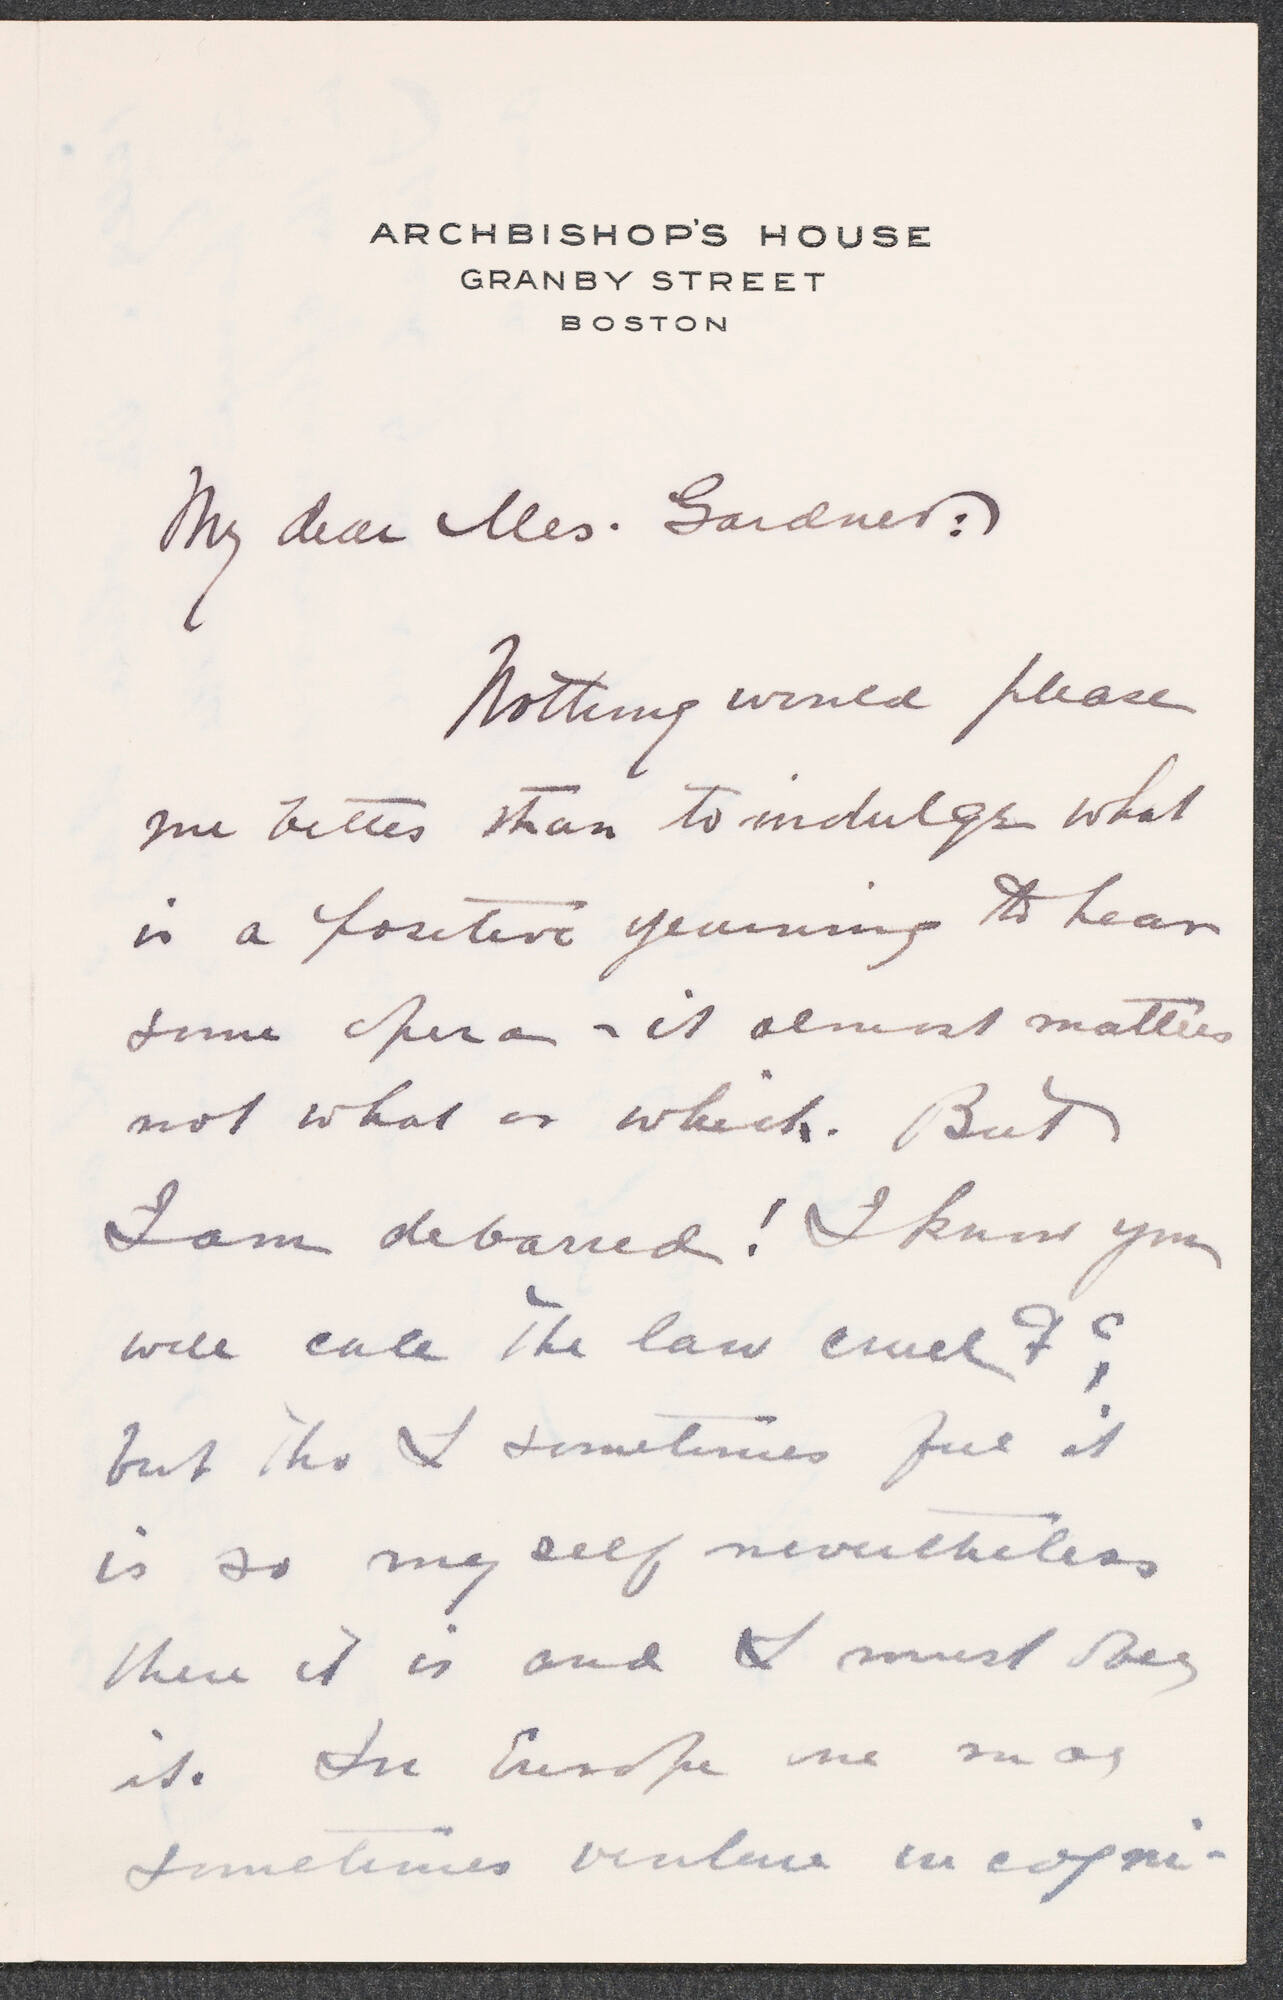 ARCHBISHOP'S HOUSE
GRANBY STREET
BOSTON
My dear Mrs. Gardner:
Nothing would please
me better than to indulge what
is a positive yearning to hear
some opera - it almost matters
not what or which. But
I am debarred! I know you
will call the law cruel
but tho I sometimes feel it
is so myself nevertheless
there it is and I must obey
it. In Europe one may
sometimes venture incogni-